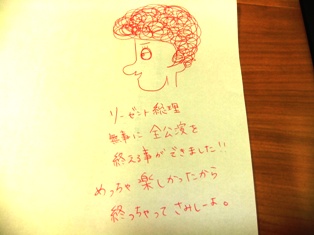 リーゼント総理
無事に全公演を
終える事ができました!!
めっちゃ楽しかったから
終っちゃってさみしーよ。